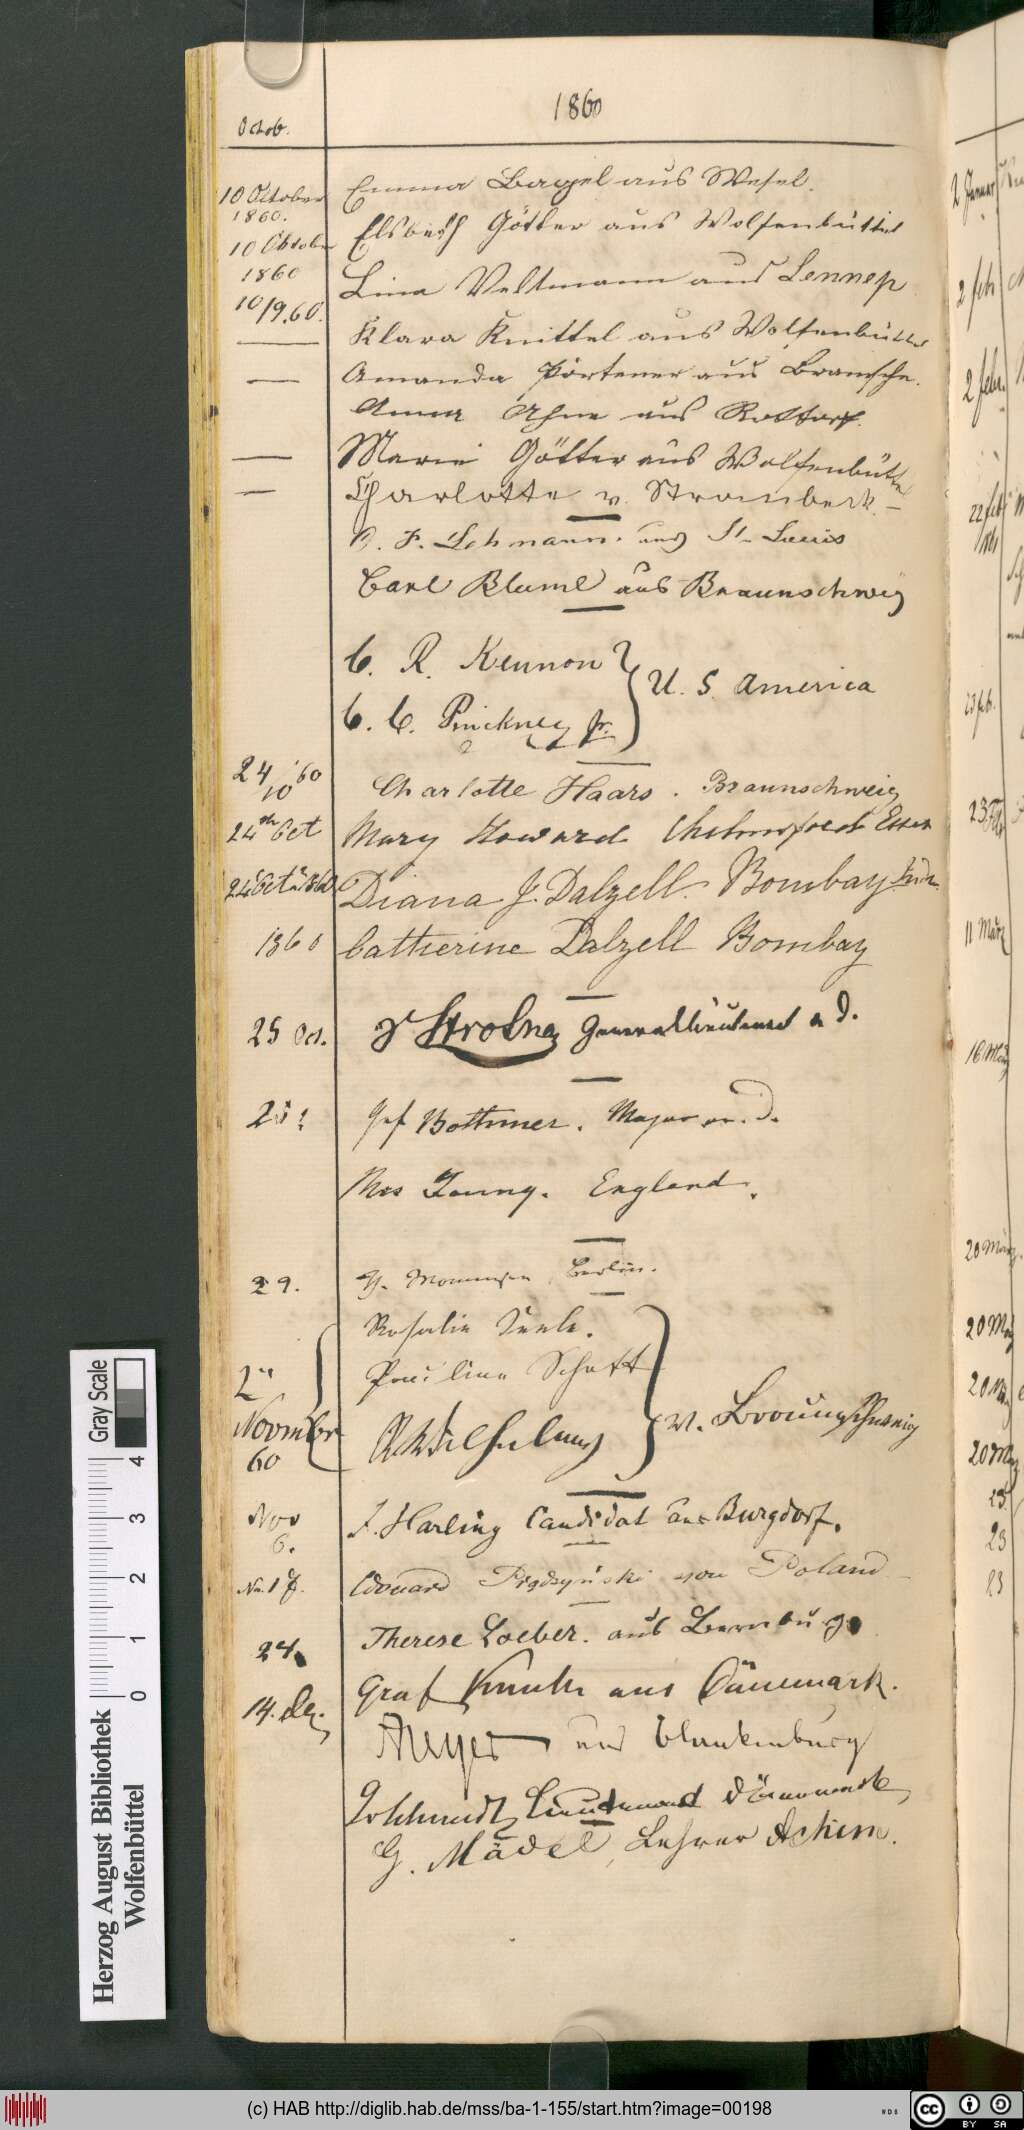 1860
Octob.
10 October Emma Bagel aus Wesel.
1860.
10 Oktober Elsbeth Götter aus Wolfenbüttel
1860 Lina Veltmann aus Lennep
10/9.60.
— Klara Knittel aus Wolfenbüttel
— Amanda Pörtener aus Bramsche.
Anna Ahne aus Rottorf.
— Marie Götter aus Wolfenbüttel
— Charlotte v. Strombeck.
F. Lehmann. aus St. Louis
Carl Blume aus Braunschweig
C. R. Kennon
U. S. America
C. C. Pinckney Jr.
24/10 60 Charlotte Haars. Braunschweig
24th Oct Mary Howard Chelmsford Essex
24 Oct 1860 Diana J. Dalzell. Bombay
1860 Catherine Dalzell Bombay
25 Oct. Generallieutenant a D.
Grf Bothmer. Major a. D.
Mrs Young. England.
29. Th. Mommsen, Berlin.
Rosalie
2 Pauline Schatt
Novembr v. Braunschweig
60
Nov 6. F. Harling Candidat aus Burgdorf.
Nov. 17. Edouard von Poland
24. Therese Loeber. aus Bernburg
14. Dez. Graf Knuth aus Dänemark.
Meyer aus Blankenburg
Lieutenant Dännemark
G. Mädel, Lehrer Achim.
2 Januar
2 feb
2 febr.
22 feb
1861
23 feb.
23 Feb
11 März
16 März
20 März
20 März
20 März
20 März
23
23
23
Gray Scale
0 1 2 3 4
Herzog August Bibliothek
Wolfenbüttel
(c) HAB http://diglib.hab.de/mss/ba-1-155/start.htm?image=00198
WDB
cc BY SA